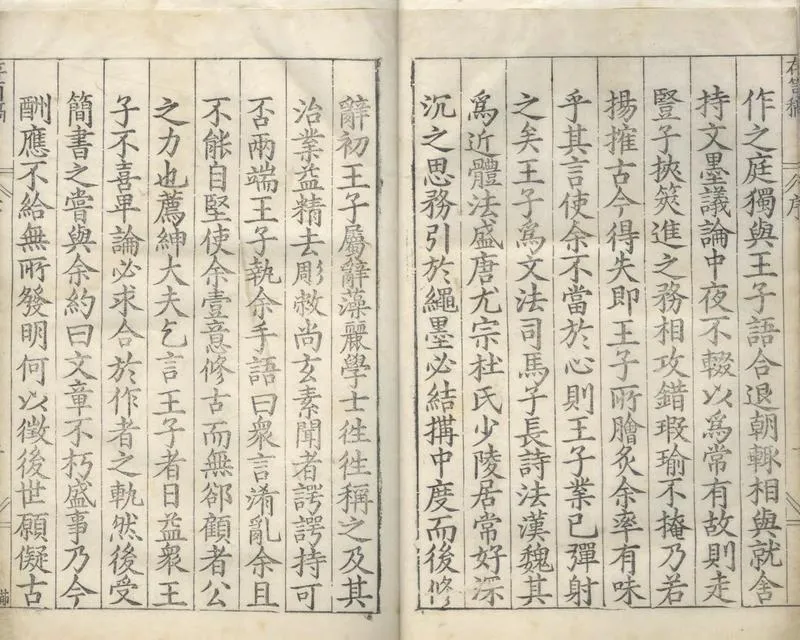 作之庭獨與王子語合退朝輒相與就舍
持文墨議論中夜不輟以爲常有故則走
豎子挾筴進之務相攻錯瑕瑜不掩乃若
揚搉古今得失即王子所膾炙余率有味
乎其言使余不當於心則王子業已彈射
之矣王子爲文法司馬子長詩法漢魏其
爲近體法盛唐尤宗杜氏少陵居常好深
沉之思務引於繩墨必結搆中度而後修
辭初王子屬辭藻麗學士徃徃稱之及其
治業益精去彫敇尚玄素聞者諤諤持可
否兩端王子執余手語曰衆言淆亂余且
不能自堅使余壹意修古而無郤顧者公
之力也薦紳大夫乞言王子者日益衆王
子不喜卑論必求合於作者之軌然後受
簡書之嘗與余約曰文章不朽盛事乃今
酬應不給無所發明何以徵後世願儗古
序